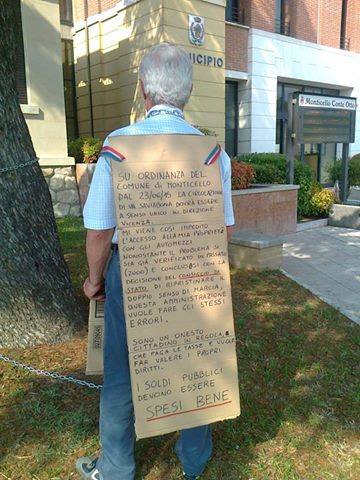 MUNICIPIO
Monticello Conte Otto
SU ORDINANZA DEL
COMUNE di MONTICELLO
DAL 23/06/15 LA CIRCOLAZIONE
DI VIA SAVIABONA DOVRÀ ESSERE
A SENSO UNICO IN DIREZIONE
VICENZA
MI VIENE COSÌ IMPEDITO
L'ACCESSO ALLA MIA PROPRIETÀ
CON GLI AUTOMEZZI.
NONOSTANTE IL PROBLEMA SI
SIA GIÀ VERIFICATO IN PASSATO
(2000) E CONCLUSOSI CON LA
DECISIONE DEL CONSIGLIO DI
STATO DI RIPRISTINARE IL
DOPPIO SENSO DI MARCIA,
QUESTA AMMINISTRAZIONE
VUOLE FARE GLI STESSI
ERRORI.
SONO UN ONESTO
CITTADINO IN REGOLA,
CHE PAGA LE TASSE E VUOLE
FAR VALERE I PROPRI
DIRITTI.
I SOLDI PUBBLICI
DEVONO ESSERE
SPESI BENE